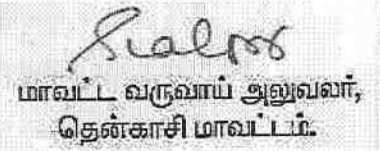 மாவட்ட வருவாய் அலுவலர்,
தென்காசி மாவட்டம்.